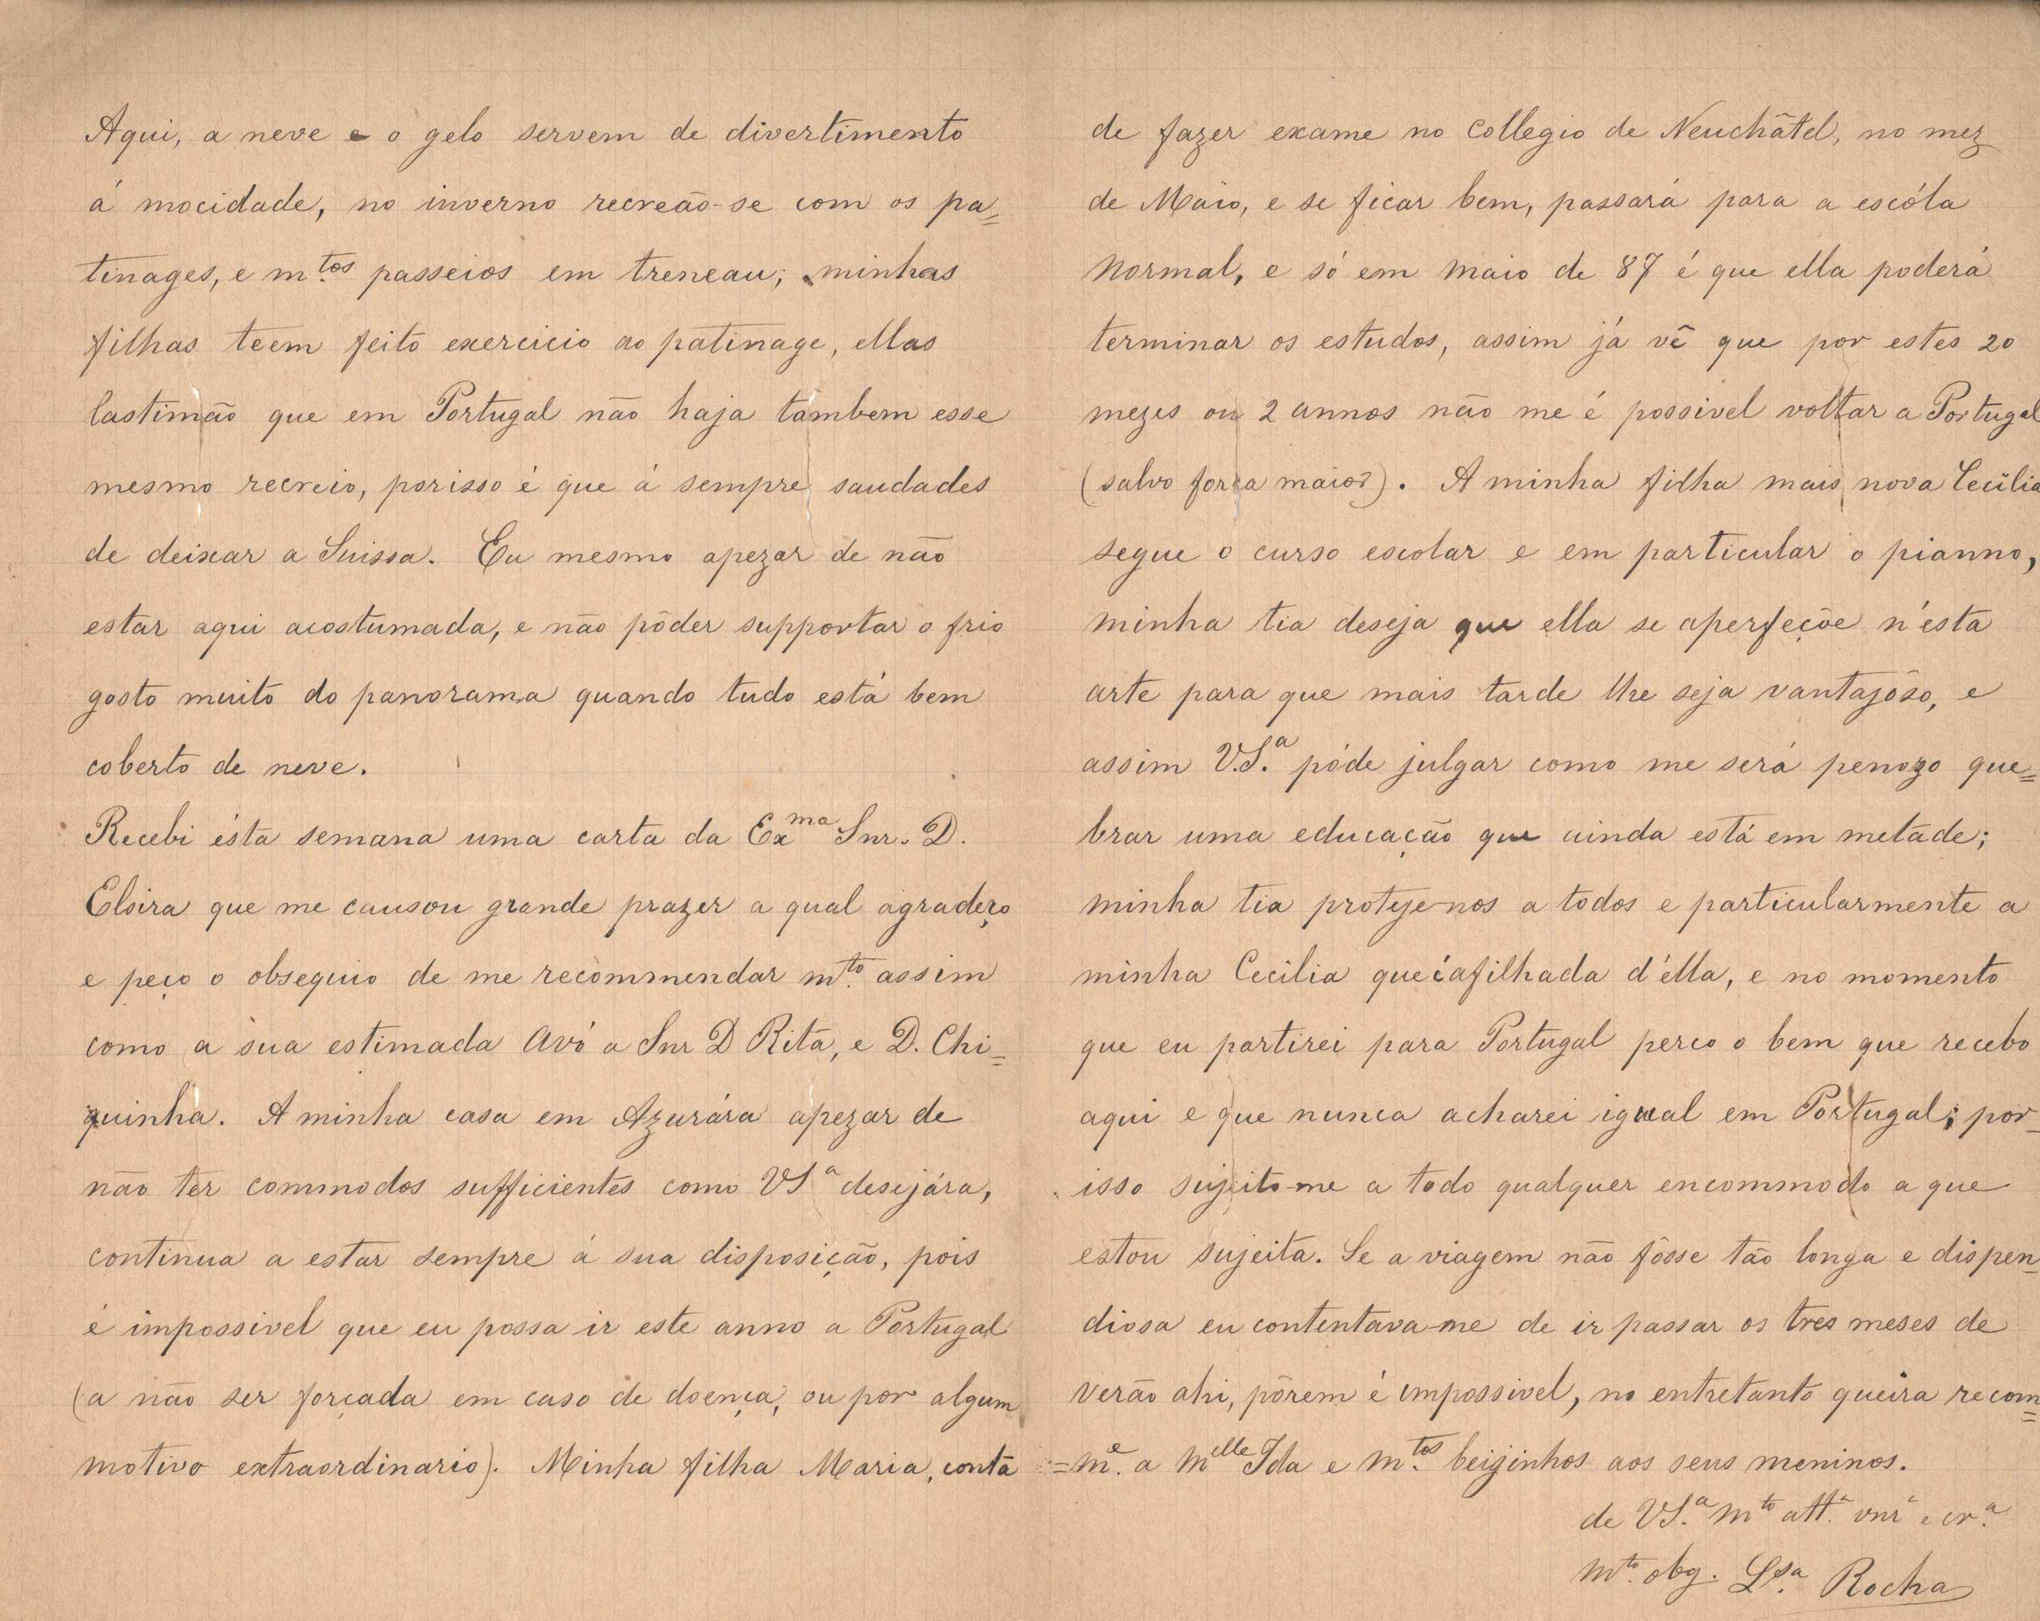 Aqui, a neve e o gelo servem de divertimento
á mocidade, no inverno recreão-se com os pa=
tinages, e m.tos passeios em treneau; minhas
filhas teem feito exercicio ao patinage, ellas
lastimão que em Portugal não haja tambem esse
mesmo recreio, porisso é que á sempre saudades
de deixar a Suissa. Eu mesmo apezar de não
estar aqui acostumada, e não pôder supportar o frio
gosto muito do panorama quando tudo está bem
coberto de neve.
Recebi ésta semana uma carta da Exma Snr. D.
Elvira que me causou grande prazer a qual agradeço
e peço o obsequio de me recommendar m.to assim
como a sua estimada Avó a Snr D Rita, e D. Chi=
quinha. A minha casa em Azurára apezar de
não ter commodos sufficientes como VSa desejára,
continua a estar sempre á sua disposição, pois
é impossivel que eu possa ir este anno a Portugal
(a não ser forçada em caso de doença, ou por algum
motivo extraordinario). Minha filha Maria, conta
de fazer exame no Collegio de Neuchâtel, no mez
de Maio, e se ficar bem, passará para a escóla
Normal, e só em Maio de 87 é que ella poderá
terminar os estudos, assim já vê que por estes 20
mezes ou 2 annos não me é possivel voltar a Portugal
(salvo força maior). A minha filha mais nova Cecilia
segue o curso escolar e em particular o pianno,
minha tia deseja que ella se aperfeçõe n'ésta
arte para que mais tarde lhe seja vantajôso, e
assim V.S.a póde julgar como me será penozo que=
brar uma educação que ainda está em metade;
minha tia proteje-nos a todos e particularmente a
minha Cecilia que é afilhada d'élla, e no momento
que eu partirei para Portugal perco o bem que recebo
aqui e que nunca acharei igual em Portugal; por-
isso sujeito-me a todo qualquer encommodo a que
estou sujeita. Se a viagem não fôsse tão longa e dispen=
diosa eu contentava-me de ir passar os tres meses de
verão ahi, pôrem é impossivel, no entretanto queira recom=
=m.e a Melle Ida e m.tos beijinhos aos seus meninos.
de VS.a Mto att.a vnr.a e cr.a
M.to obg. L.sa Rocha